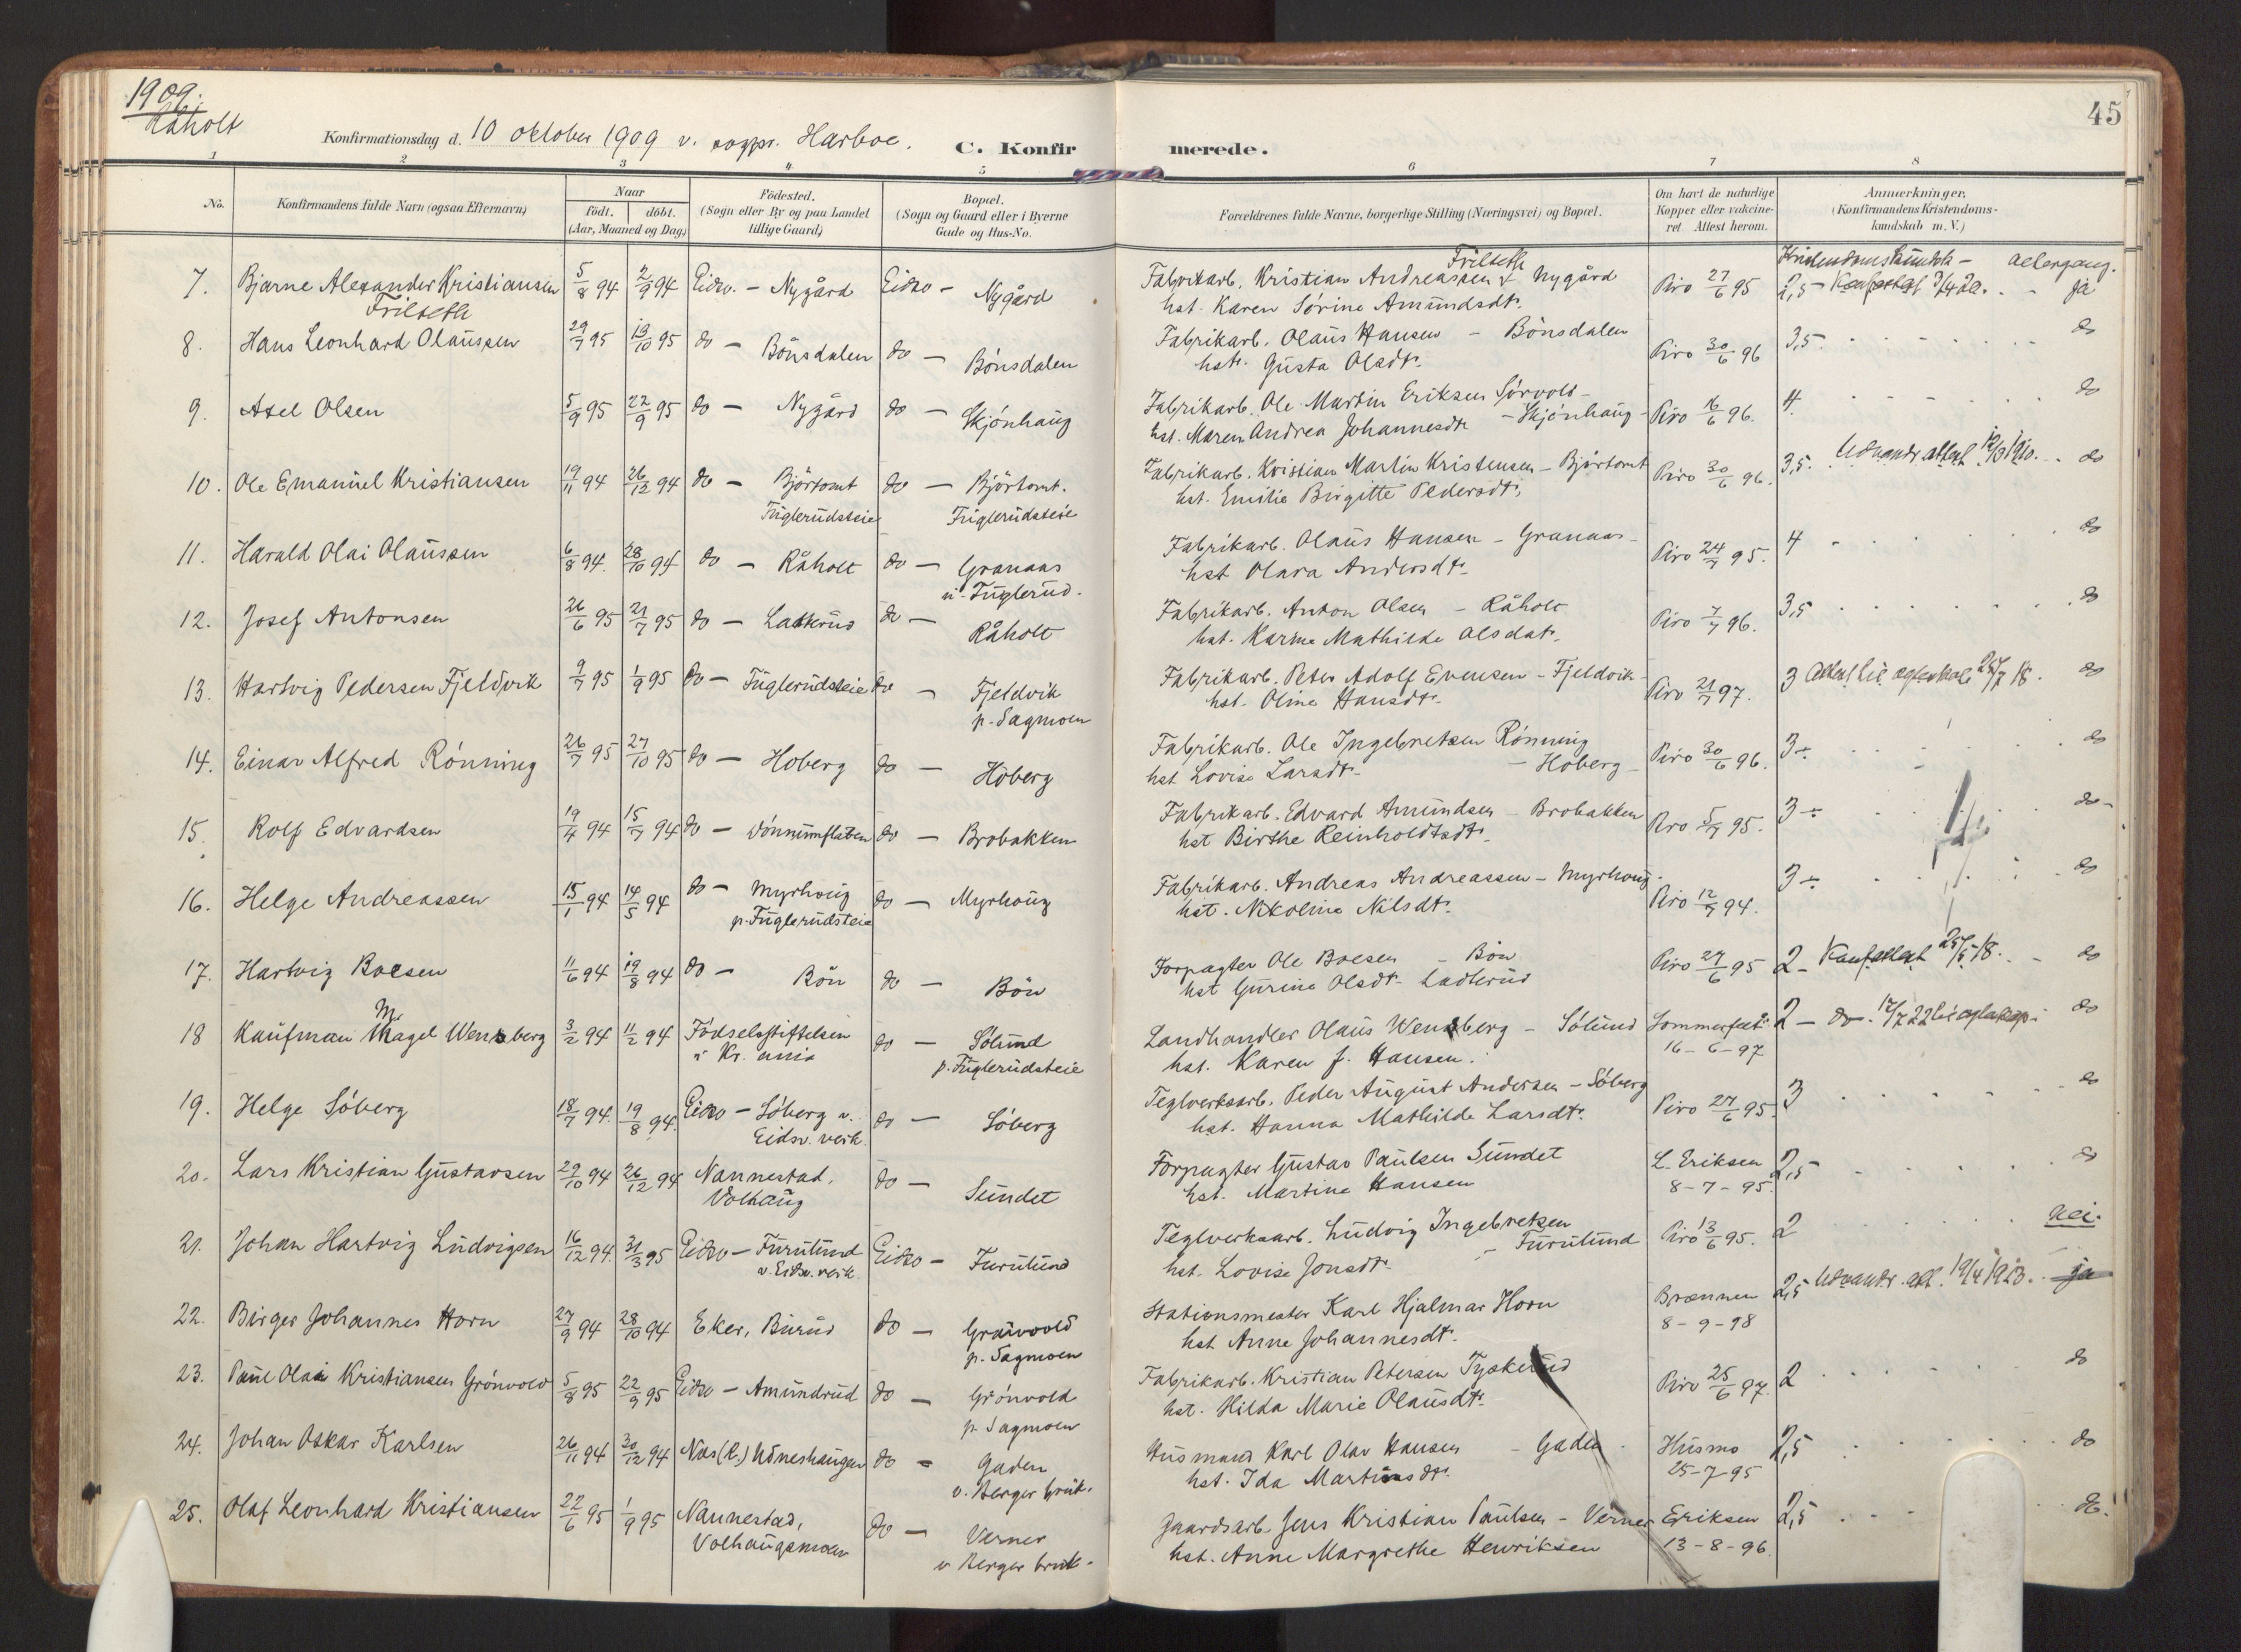 1909.
Råholt
45
Konfirmationsdag d. 10 oktober 1909 v. sogpr. Harboe.
C. Konfirmerede.
1 2 3 4 5 6 7 8
No.
Konfirmandens fulde Navn (ogsaa Efternavn)
Naar
födt. döbt.
(Aar, Maaned og Dag)
Födested.
(Sogn eller By og paa Landet
tillige Gaard)
Bopæl.
(Sogn og Gaard eller i Byerne
Gade og Hus-No.
Forældrenes fulde Navne, borgerlige Stilling (Næringsvei) og Bopæl.
Om havt de naturlige
Kopper eller vakcine-
ret Attest herom.
Anmærkninger.
(Konfirmandens Kristendoms-
kundskab m. V.)
7. Bjarne Alexander Kristiansen 5/8 94 2/9 94 Eidsv. – Nygård Eidsv – Nygård Fabrikarb. Kristian Andreassen Nygård Piro 27/6 95 2,5 ja
Frilseth hst. Karen Sørine Amundsdtr.
8. Hans Leonhard Olaussen 29/7 95 13/10 95 do – Bönsdalen do – Bönsdalen Fabrikarb. Olaus Hansen – Bönsdalen Piro 30/6 96 3,5 do
hst. Gusta Olsdtr.
9. Axel Olsen 5/9 95 22/9 95 do – Nygård do – Skjönhaug Fabrikarb. Ole Martin Eriksen Sørvold – Skjönhaug Piro 16/6 96. 4 do
hst. Maren Andrea Johannesdtr
10. Ole Emanuel Kristiansen 19/11 94 26/12 94 do – Björtomt do – Björtomt. Fabrikarb. Kristian Martin Kristensen – Björtomt Piro 30/6 96. 3,5. Udvandr. attest do
Fuglerudsteie Fuglerudsteie hst. Emilie Birgitte Pedersdtr.
11. Harald Olai Olaussen 6/8 94. 28/10 94 do – Råholt do – Granaas Fabrikarb. Olaus Hansen – Granaas Piro 24/7 95. 4 do
u. Fuglerud. hst Olava Andersdtr.
12. Josef Antonsen 26/6 95 21/7 95 do – do – Råholt Fabrikarb. Anton Olsen – Råholt Piro 7/7 96. 3,5 do
hst. Karine Mathilde Olsdatr.
13. Hartvig Pedersen Fjeldvik 9/7 95 1/9 95 do – Fuglerudsteie do – Fjeldvik Fabrikarb. Peter Adolf Evensen – Fjeldvik Piro 21/7 97. 3 Attest 25/7 18. do
p. Sagmoen hst. Oline Hansdtr.
14. Einar Alfred Rönning 26/7 95 27/10 95 do – Hoberg do – Hoberg Fabrikarb. Ole Ingebretsen Rönning Piro 30/6 96. 3÷ do
hst Lovise Larsdtr. – Hoberg
15. Rolf Edvardsen 19/4 94 15/7 94 do – Dönnumflaten do – Brobakken Fabrikarb. Edvard Amundsen – Brobakken Piro 5/7 95. 3÷ do
hst Birthe Reinholdtsdtr.
16. Helge Andreassen 15/1 94 14/5 94 do – Myrhoug do – Myrhoug Fabrikarb. Andreas Andreassen – Myrhoug Piro 12/7 94. 3÷ do
p. Fuglerudsteie hst. Nikoline Nilsdtr.
17. Hartvig Boesen 11/6 94 19/8 94 do – Bön do – Bön Forpagter Ole Boesen – Bön Piro 27/6 95 2 – Konf. attest 25/5 18. do
hst Gurine Olsdtr.
18 Kaufman Magel Wensberg 3/2 94 11/2 94 Födselsstiftelsen do – Sölund Landhandler Olaus Wensberg – Sölund Sommerfeldt 2 – do 17/7 22 do
i Kr. ania p. Fuglerudsteie hst. Karen J. Hansen. 16-6-97
19. Helge Söberg 18/7 94. 19/8 94. Eidsv – Söberg v. do – Söberg Teglverksarb. Peder August Andersen – Söberg Piro 27/6 95. 3 do
Eidsv. verk. hst. Hanna Mathilde Larsdtr.
20. Lars Kristian Gustavsen 29/10 94 26/12 94 Nannestad, do – Sundet Forpagter Gustav Paulsen Sundet L. Eriksen 2,5 do
Volhaug hst. Martine Hansen 8-7-95.
21. Johan Hartvig Ludvigsen 16/12 94. 31/3 95 Eidsv – Furulund Eidsv – Furulund Teglverksarb. Ludvig Ingebretsen – Furulund Piro 13/6 95. 2 nei.
v. Eidsv. verk. hst. Lovise Jonsdtr.
22. Birger Johannes Horn 27/9 94 28/10 94 Eker, Burud do – Stationsmester Karl Hjalmar Horn Brænnen 2,5 Udvandr. att. 19/4 1923. ja
p. Sagmoen hst Anne Johannesdtr. 8-9-98
23. Paul Olai Kristiansen Grönvold 5/8 95 22/9 95 Eidsv – Amundrud do – Grönvold Fabrikarb. Kristian Petersen Tyskerud Piro 25/6 97. 2 do
p. Sagmoen hst. Hilda Marie Olausdtr.
24. Johan Oskar Karlsen 26/11 94 30/12 94 Næs (R.) Udneshaugen do – Gaden Husmand Karl Olav Hansen – Gaden Husmo 2,5 do
v. Berger bruk. hst. Ida Martinsdtr. 25-7-95
25. Olaf Leonhard Kristiansen 22/6 95 1/9 95 Nannestad, do – Verner Gaardsarb. Jens Kristian Paulsen – Verner Eriksen 2,5 do.
Volhaugsmoen v Berger bruk. hst. Anne Margrethe Henriksen 13-8-96.